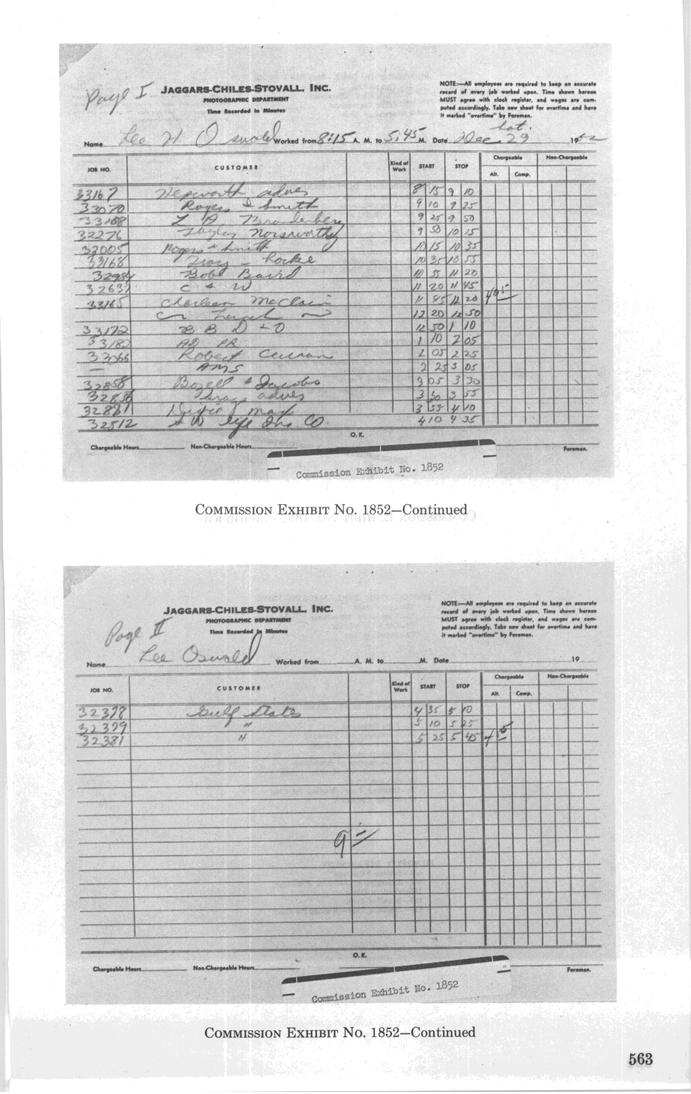 Page I
JAGGARS-CHILES-STOVALL, INC.
PHOTOGRAPHIC DEPARTMENT
Time Recorded in Minutes
NOTE:—All employees are required to keep an accurate
record of every job worked upon. Time shown hereon
MUST agree with clock register, and wages are com-
puted accordingly. Take new sheet for overtime and have
it marked "overtime" by Foreman.
Sat.
Name Lee H. Oswald Worked from 8:15 A. M. to 5:45 M. Date Dec. 29 1962
JOB NO. CUSTOMER Kind of Work START STOP Chargeable Non-Chargeable
Alt. Comp.
33167 Hepworth advs 8 15 9 10
33070 Rogers & Smith 9 10 9 25
33168 L A 9 25 9 50
32276 Taylor Norsworthy 9 50 10 15
32005 Rogers & Smith 10 15 10 35
33168 Tracy - Locke 10 35 10 55
Bobt Baird 10 55 11 20
32631 C & W 11 20 11 45
33165 Charleen McClain 11 45 12 20
Lunch 12 20 12 50
33172 B B D & O 12 50 1 10
33182 AD PR 1 10 2 05
33066 Robert Curran 2 05 2 25
— AMS 2 25 3 05
32858 Bozell & Jacobs 3 05 3 30
advs 3 30 3 55
32821 3 55 4 10
32812 S W Life Ins Co. 4 10 4 35
O.K.
Chargeable Hours Non-Chargeable Hours Foreman.
Commission Exhibit No. 1852
COMMISSION EXHIBIT NO. 1852—Continued
Page II
JAGGARS-CHILES-STOVALL, INC.
PHOTOGRAPHIC DEPARTMENT
Time Recorded in Minutes
NOTE:—All employees are required to keep an accurate
record of every job worked upon. Time shown hereon
MUST agree with clock register, and wages are com-
puted accordingly. Take new sheet for overtime and have
it marked "overtime" by Foreman.
Name Lee Oswald Worked from A. M. to M. Date 19
JOB NO. CUSTOMER Kind of Work START STOP Chargeable Non-Chargeable
Alt. Comp.
32378 Gulf States 4 35 5 10
32379 " 5 10 5 25
32381 " 5 25 5 45
9
O.K.
Chargeable Hours Non-Chargeable Hours Foreman.
Commission Exhibit No. 1852
COMMISSION EXHIBIT NO. 1852—Continued
563